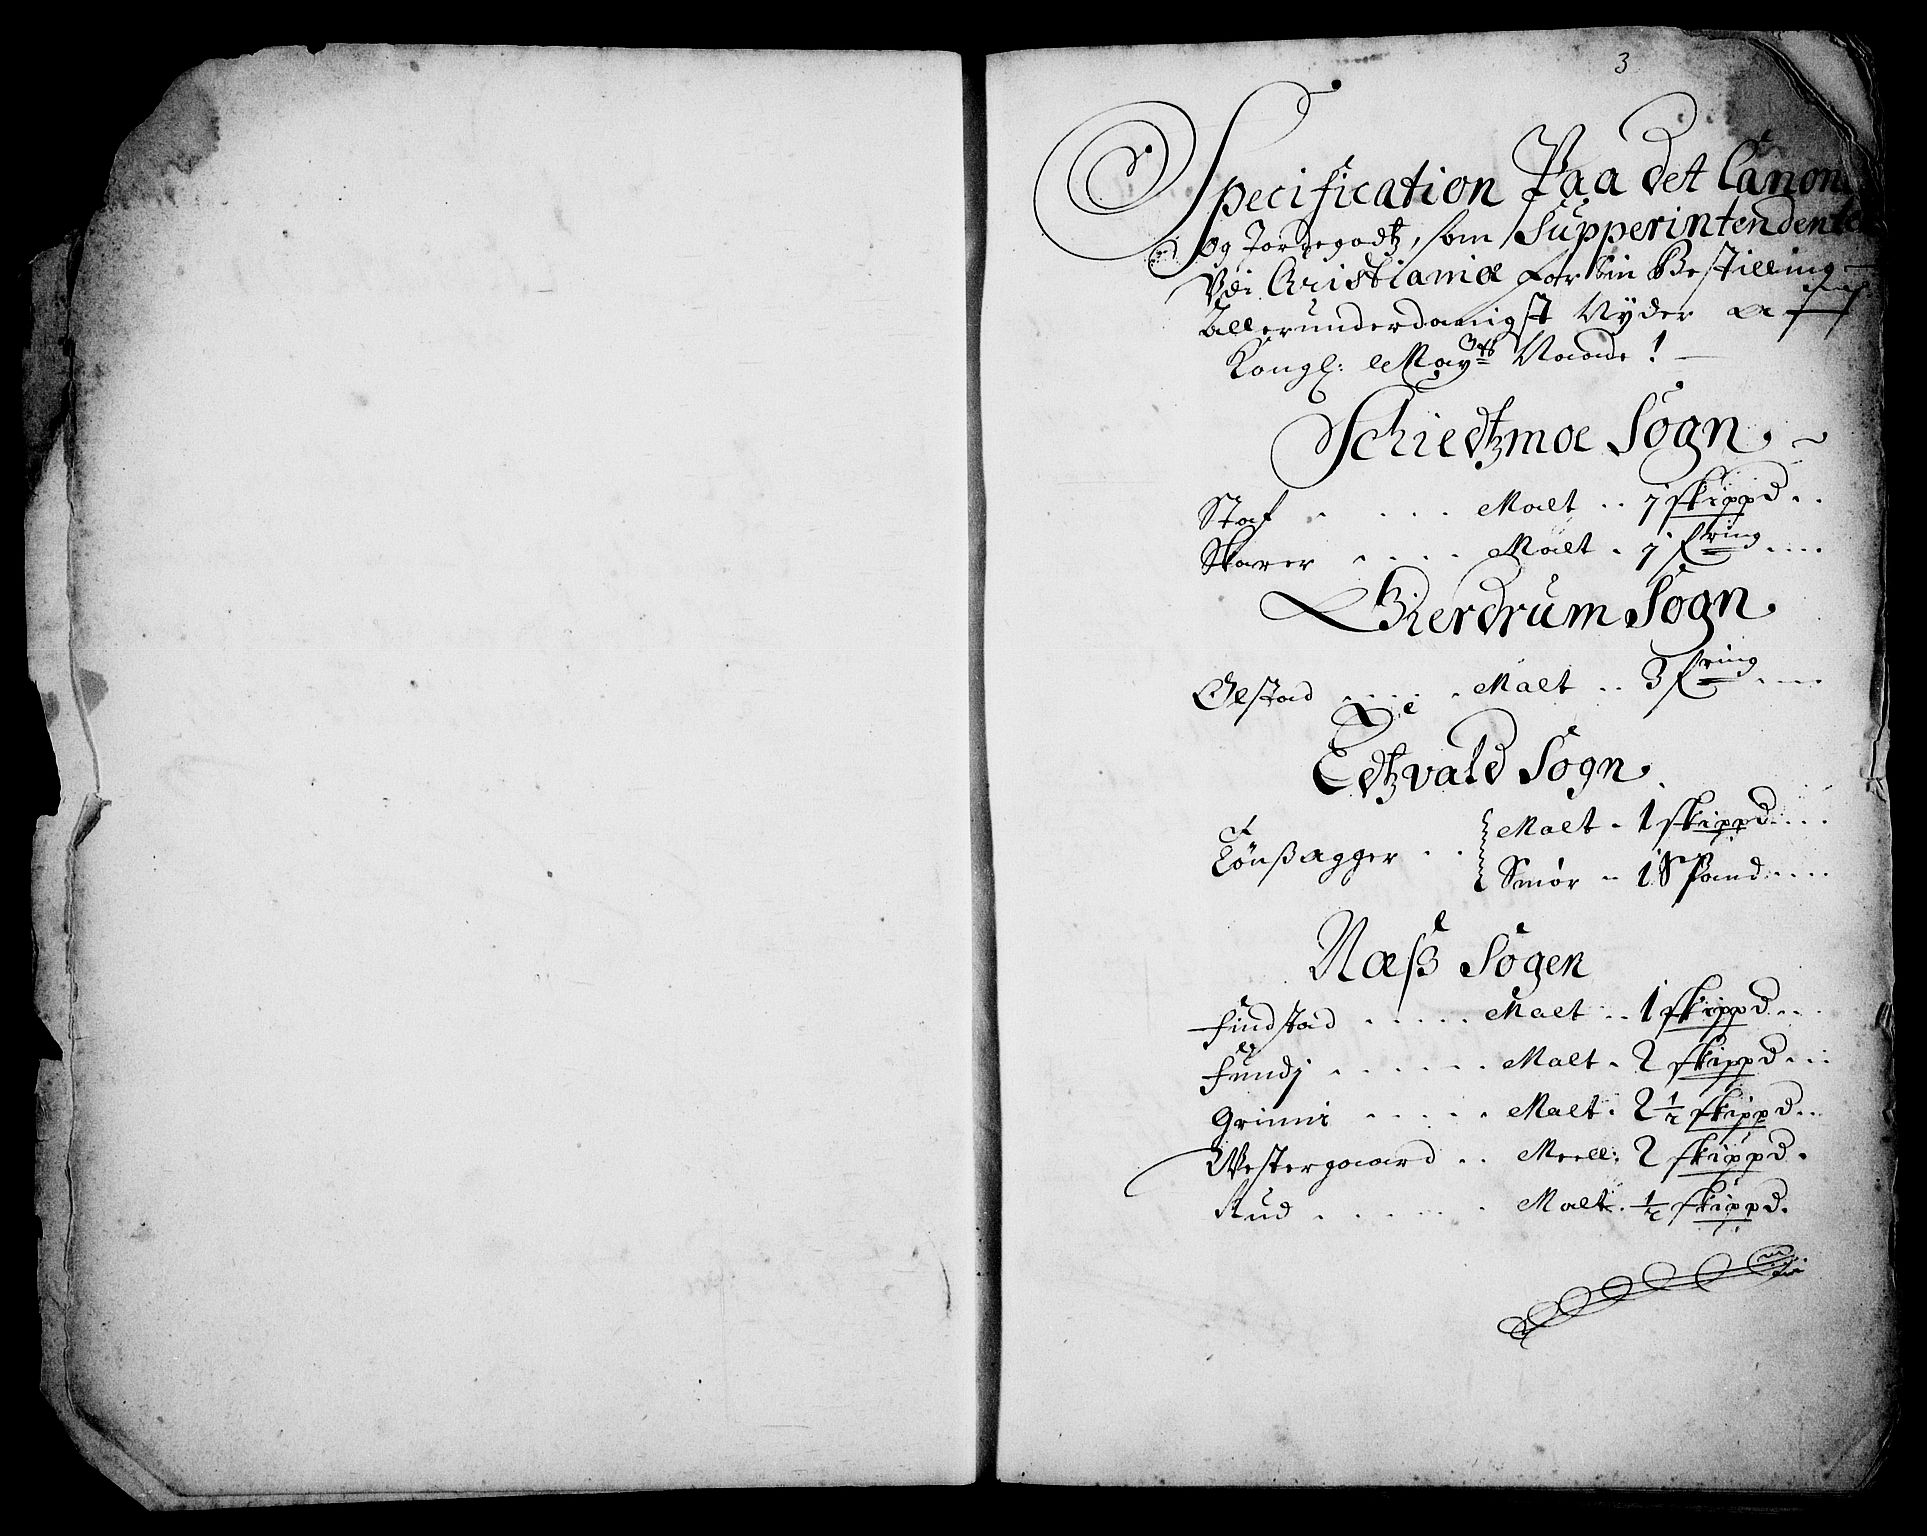 3
Specification Paa det Canoni
og Jordegodtz, som Supperintendenten
Vdi Christianiæ for Sin Bestilling
Allerunderdanigst Nyder af
Kongl: Mayts Naade!
Schiedtzmoe Sogn.
Staf . . . . Malt . . 1 skippd . .
Skarer . . . . Malt . 1 fring . . . .
Gierdrum Sogn.
Ølstad . . . . . Malt . . 3 fring . . . .
Edtzvald Sogn.
Tønßagger . . Malt . 1 skippd . . . .
Smør . . 1 Spand . . . .
Næß Sogen
Findstad . . . . . Malt . . 1 skippd . . .
Fundj . . . . . . Malt . 2 skippd . . .
Grinni . . . . . Malt . 2 1/2 skippd . .
Westergaard . . Meell: 2 skippd .
Rud . . . . . . Malt . 1/2 skippd .